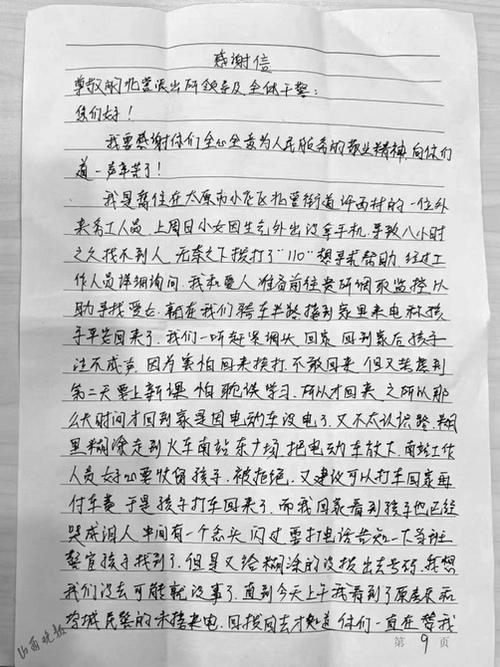 感谢信
尊敬的北营派出所领导及全体干警：
您们好！
我要感谢你们全心全意为人民服务的敬业精神,向你们
道一声辛苦了！
我是寄住在太原市小店区北营街道许西村的一位外
来务工人员,上周日小女因生气外出没拿手机,导致八小时
之久找不到人,无奈之下拨打了"110"想寻求帮助,经过工
作人员详细询问,我和爱人准备前往贵所调取监控以
助寻找爱女,就在我们骑车半路接到家里来电称孩
子平安回来了,我们一听赶紧调头,回家,回到家后孩子
泣不成声,因为害怕回来挨打,不敢回来,但又考虑到
第二天要上新课,怕耽误学习,所以才回来,之所以那
么长时间才回到家是因电动车没电了,又不太认识路,糊
里糊涂走到火车南站东广场,把电动车放下,南站工作
人员好心要收留孩子,被拒绝,又建议可以打车回家再
付车费,于是孩子打车回来了,而我回家看到孩子也已经
哭成泪人,中间有一个念头闪过要打电话告知一下当班
警官孩子找到了,但是又给糊涂的没拨出去号码,我想
我们没去可能就没事了,直到今天上午我看到了原来和
李城民警的未接来电,回拨回去才知道你们一直在替我
第 9 页
山西晚报